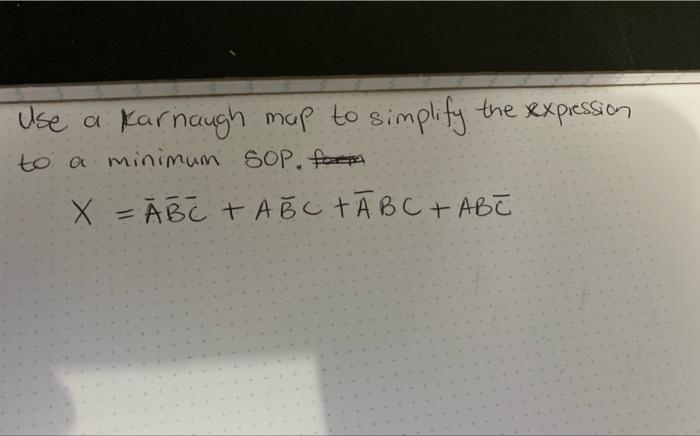 Use a Karnaugh map to simplify the expression
to a minimum SOP.
X = A̅B̅C̅ + AB̅C + A̅BC + ABC̅